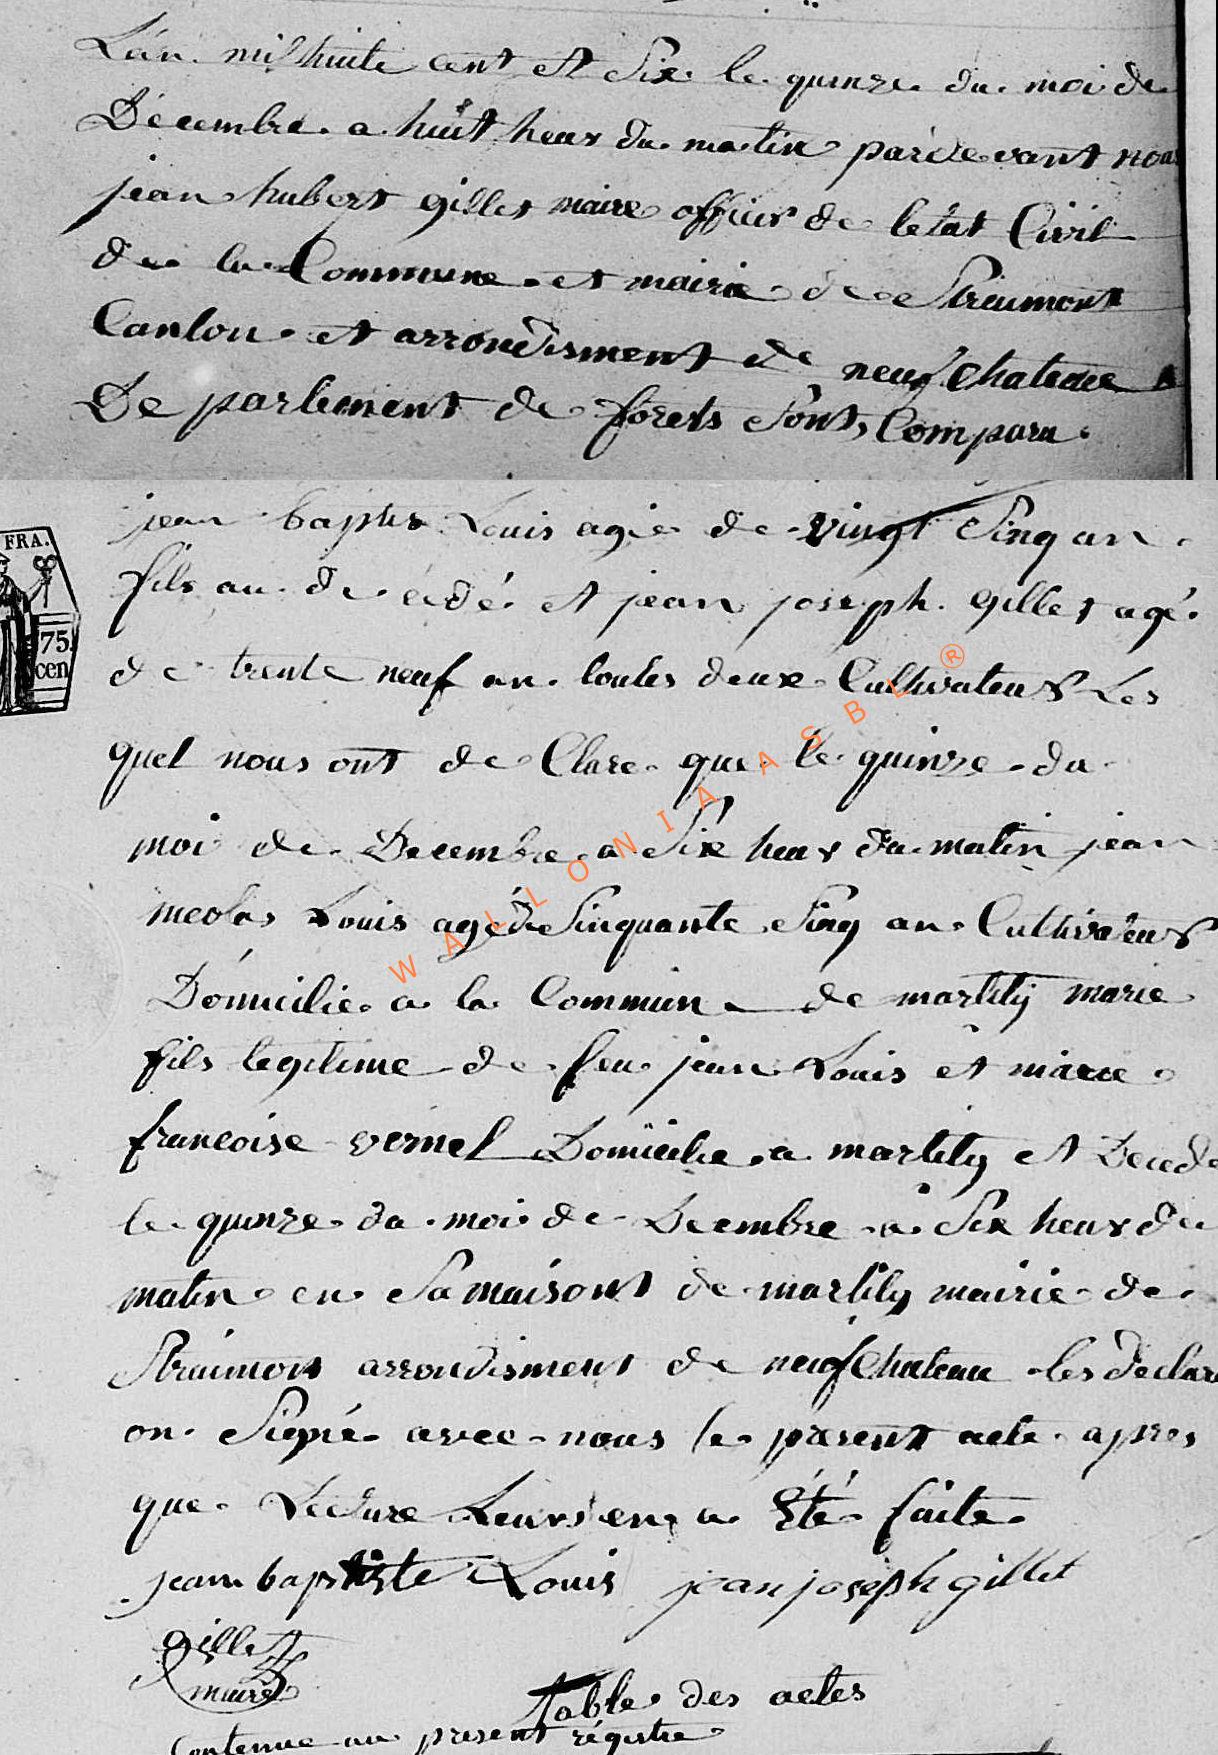 Lán milhuite cent et Six le quinze du moi de
Décembre a huit heur du matin pardevant nous
jean hubert gillet maire officier de letat Civil
de la Commune et mairie de Straumont
Canton et arrondisment de neufchateau
De partement de forets Sont Comparu
jean baptis Louis agie de vingt Sinq an
fils au de cédé et jean joseph gillet agé
FRA.
75.
cen
de trente neuf an toutes deux Cultivateur Les
quel nous ont de Clare que le quinze du
moi de Decembre a Six heur du matin jean
nicolas Louis agé de Sinquante Sinq an Cultivateur
Domicilie a la Commun de martily marie
fils legitime de feu jean Louis et marie
francoise vernel Domicilie a martily et Decede
le quinze du moi de Decembre a Six heur du
matin en Sa maisont de martily mairie de
Straimont arrondisment de neufchateau les declar
on Signé avec nous le present acte apres
que Lecture Leurs en a Eté faite
jean baptiste Louis jean joseph gillet
gillet
maire
table des actes
Contenue au present régistre
WALLONIA ASBL ®